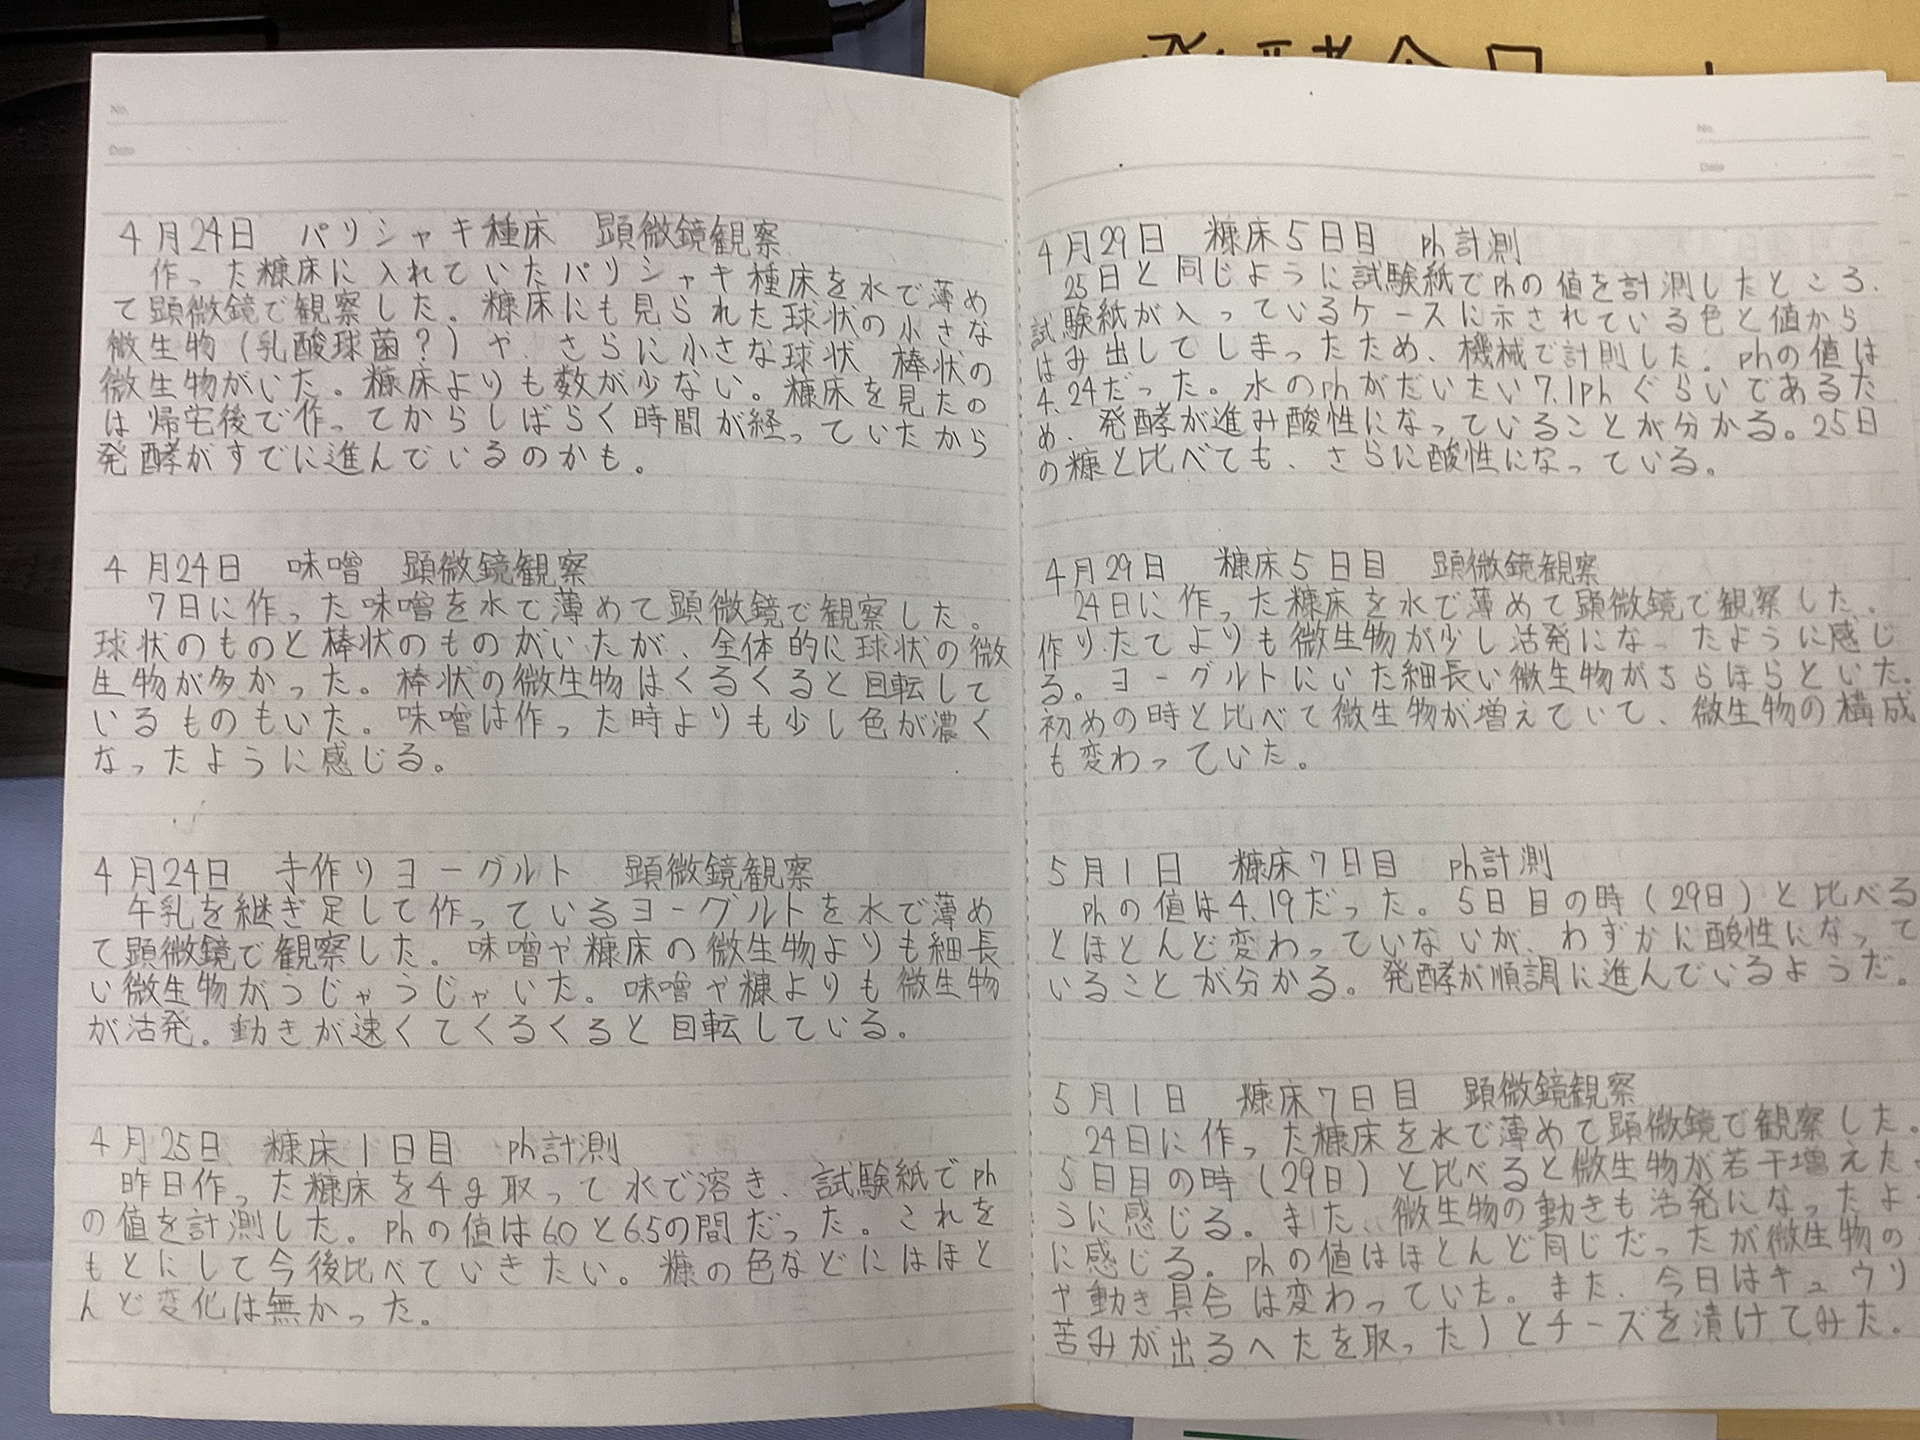 No.
Date
4月24日 パリシャキ種床 顕微鏡観察
作った糠床に入れていたパリシャキ種床を水で薄め
て顕微鏡で観察した。糠床にも見られた球状の小さな
微生物(乳酸球菌?)や、さらに小さな球状、棒状の
微生物がいた。糠床よりも数が少ない。糠床を見たの
は帰宅後で作ってからしばらく時間が経っていたから
発酵がすでに進んでいるのかも。
4月24日 味噌 顕微鏡観察
7日に作った味噌を水で薄めて顕微鏡で観察した。
球状のものと棒状のものがいたが、全体的に球状の微
生物が多かった。棒状の微生物はくるくると回転して
いるものもいた。味噌は作った時よりも少し色が濃く
なったように感じる。
4月24日 手作りヨーグルト 顕微鏡観察
牛乳を継ぎ足して作っているヨーグルトを水で薄め
て顕微鏡で観察した。味噌や糠床の微生物よりも細長
い微生物がうじゃうじゃいた。味噌や糠よりも微生物
が活発。動きが速くてくるくると回転している。
4月25日 糠床1日目 ph計測
昨日作った糠床を4g取って水で溶き、試験紙でph
の値を計測した。phの値は6.0と6.5の間だった。これを
もとにして今後比べていきたい。糠の色などにはほと
んど変化は無かった。
No.
Date
4月29日 糠床5日目 ph計測
25日と同じように試験紙でphの値を計測したところ、
試験紙が入っているケースに示されている色と値から
はみ出してしまったため、機械で計測した。phの値は
4.24だった。水のphがだいたい7.1phぐらいであるた
め、発酵が進み酸性になっていることが分かる。25日
の糠と比べても、さらに酸性になっている。
4月29日 糠床5日目 顕微鏡観察
24日に作った糠床を水で薄めて顕微鏡で観察した。
作りたてよりも微生物が少し活発になったように感じ
る。ヨーグルトにいた細長い微生物がちらほらといた。
初めの時と比べて微生物が増えていて、微生物の構成
も変わっていた。
5月1日 糠床7日目 ph計測
phの値は4.19だった。5日目の時(29日)と比べる
とほとんど変わっていないが、わずかに酸性になって
いることが分かる。発酵が順調に進んでいるようだ。
5月1日 糠床7日目 顕微鏡観察
24日に作った糠床を水で薄めて顕微鏡で観察した。
5日目の時(29日)と比べると微生物が若干増えた
うに感じる。また、微生物の動きも活発になったよ
に感じる。phの値はほとんど同じだったが微生物の
や動き具合は変わっていた。また、今日はキュウリ
苦みが出るへたを取った)とチーズを漬けてみた。